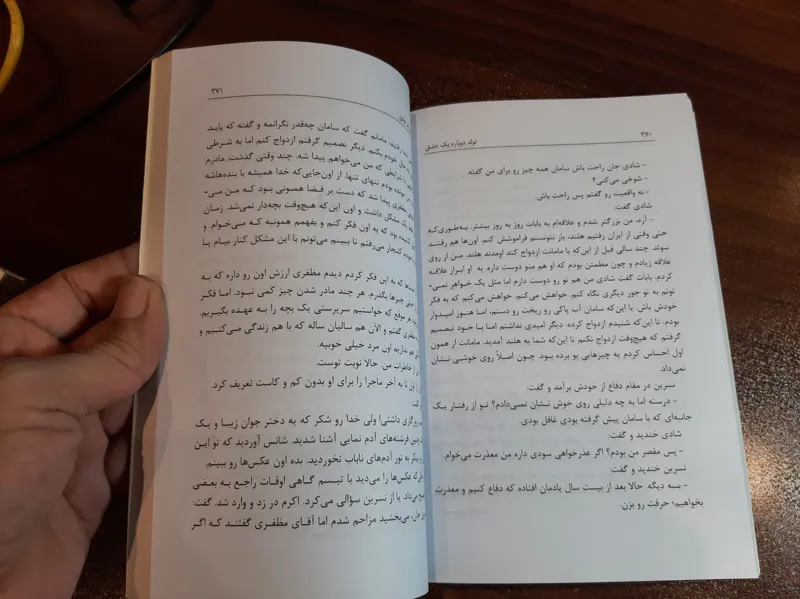 ۳۷۰
تولد دوباره یک عشق
- شادی جان راحت باش سامان همه چیز رو برای من گفته.
- شوخی می‌کنی؟
- نه واقعیت رو گفتم پس راحت باش.
شادی گفت:
- آره، من بزرگتر شدم و علاقه‌ام به بابات روز به روز بیشتر. به‌طوری‌که
حتی وقتی از ایران رفتیم هلند، باز نتونستم فراموشش کنم. اون‌ها هم رفتند
سوئد. چند سالی قبل از این‌که با مامانت ازدواج کند اومدند هلند. من از روی
علاقه زیادم و چون مطمئن بودم که او هم منو دوست داره به او ابراز علاقه
کردم. بابات گفت شادی من هم تو رو دوست دارم اما مثل یک خواهر نمی‌-
تونم به تو جور دیگری نگاه کنم. خواهش می‌کنم، خواهش می‌کنم که به فکر
خودش باش. با این‌که سامان آب پاکی رو ریخت رو دستم، اما هنوز امیدوار
بودم. تا این‌که شنیدم ازدواج کرده. دیگر امیدی نداشتم اما با خود تصمیم
گرفتم که هیچ‌وقت ازدواج نکنم تا این‌که شما به هلند آمدید. مامانت از همون
اول احساس کردم یه چیزهایی بو برده بود. چون اصلاً روی خوشی نشان
نمی‌داد.
نسرین در مقام دفاع از خودش برآمد و گفت:
- درسته اما به چه دلیلی روی خوش نشان نمی‌دادم؟ تو از رفتار یک
جانبه‌ای که با سامان پیش گرفته بودی غافل بودی.
شادی خندید و گفت:
- پس مقصر من بودم؟ اگر عذرخواهی سودی داره من معذرت می‌خوام.
نسرین خندید و گفت:
- بسه دیگه. حالا بعد از بیست سال یادمان افتاده که دفاع کنیم و معذرت
بخواهیم؛ حرفت رو بزن.
۳۷۱
رفتید، مامانم گفت که سامان چه‌قدر نگرانمه و گفته که باید
حال خودم بکنم. دیگر تصمیم گرفتم ازدواج کنم اما به شرطی
شرایطی که من می‌خواهم پیدا شه. چند وقتی گذشت. مادرم
مونده بودم تنهای تنها. از اون‌جایی‌که خدا همیشه با بنده‌هاشه
مظفری پیدا شد که دست بر قضا همونی بود که من می‌-
یک مشکل داشت و اون این‌که هیچ‌وقت بچه‌دار نمی‌شد. زمان
بود که به اون فکر کنم و بفهمم همونیه که می‌خوام. و
کلنجار می‌رفتم تا ببینم می‌تونم با این مشکل کنار بیام یا
که به این فکر کردم دیدم مظفری ارزش اون رو داره که به
چیزها بگذرم. هر چند مادر شدن چیز کمی نبود. اما فکر
هر موقع که خواستیم سرپرستی یک بچه را به عهده بگیریم.
مظفری گفتم و الان هم سالیان ساله که با هم زندگی می‌کنیم و
هم نداریم اون مرد خیلی خوبیه.
از خاطرات من. حالا نوبت توست.
اول تا به آخر ماجرا را برای او بدون کم و کاست تعریف کرد.
گفت
روزگاری داشتی! ولی خدا رو شکر که یه دختر جوان زیبا و یک
فرشته‌های آدم نمایی آشنا شدید. شانس آوردید که تو این
به تور آدم‌های ناباب نخوردید. بده اون عکس‌ها رو ببینم.
که عکس‌ها را می‌دید با تبسم گاهی اوقات راجع به بعضی
می‌داد یا از نسرین سؤالی می‌کرد. اکرم در زد و وارد شد. گفت:
می‌بخشید مزاحم شدم اما آقای مظفری گفتند که اگر